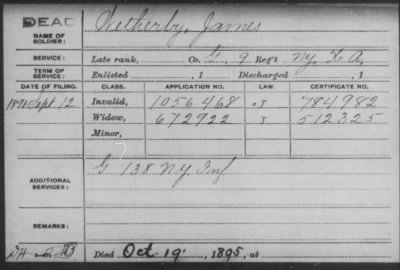 DEAD
NAME OF SOLDIER: Weatherby, James
SERVICE: Late rank, Co. G, 9 Reg't NY. H A,
TERM OF SERVICE: Enlisted , 1 Discharged , 1
DATE OF FILING. CLASS. APPLICATION NO. LAW. CERTIFICATE NO.
Sept 12 Invalid, 1056468 J 784982
Widow, 672922 J 512325
Minor,
ADDITIONAL SERVICES: G 138 NY Inf
REMARKS:
Died Oct. 19, 1895, at